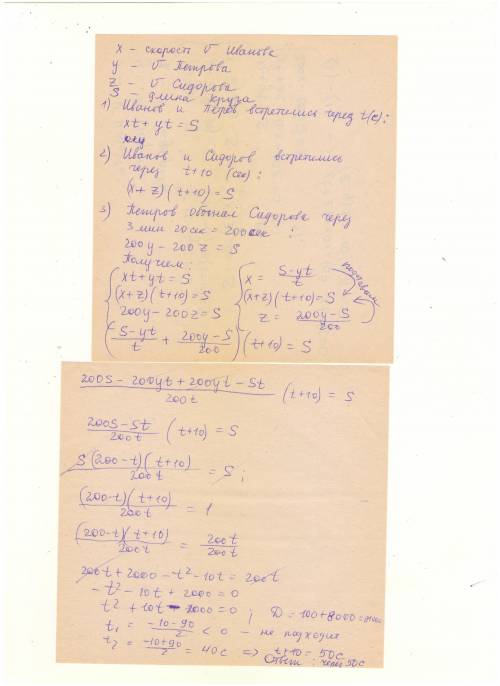 x - скорость v Иванова
y - v Петрова
z - v Сидорова
S - длина круга
1) Иванов и Петров встретились через t(c):
xt + yt = S
2) Иванов и Сидоров встретились
через t+10 (сек):
(x+z)(t+10) = S
3) Петров обогнал Сидорова через
3 мин 20 сек = 200 сек :
200y - 200z = S
Получаем:
xt + yt = S
(x+z)(t+10) = S
200y - 200z = S
x = (S-yt)/t
(x+z)(t+10) = S
z = (200y-S)/200
подставим
((S-yt)/t + (200y-S)/200)(t+10) = S
(200S - 200yt + 200yt - St)/200t (t+10) = S
(200S - St)/200t (t+10) = S
S(200-t)(t+10)/200t = S ;
(200-t)(t+10)/200t = 1
(200-t)(t+10)/200t = 200t/200t
200t + 2000 - t² - 10t = 200t
-t² - 10t + 2000 = 0
t² + 10t - 2000 = 0 ; D = 100 + 8000 =
t₁ = (-10-90)/2 < 0 - не подходит
t₂ = (-10+90)/2 = 40c => t+10 = 50c
Ответ: через 50c